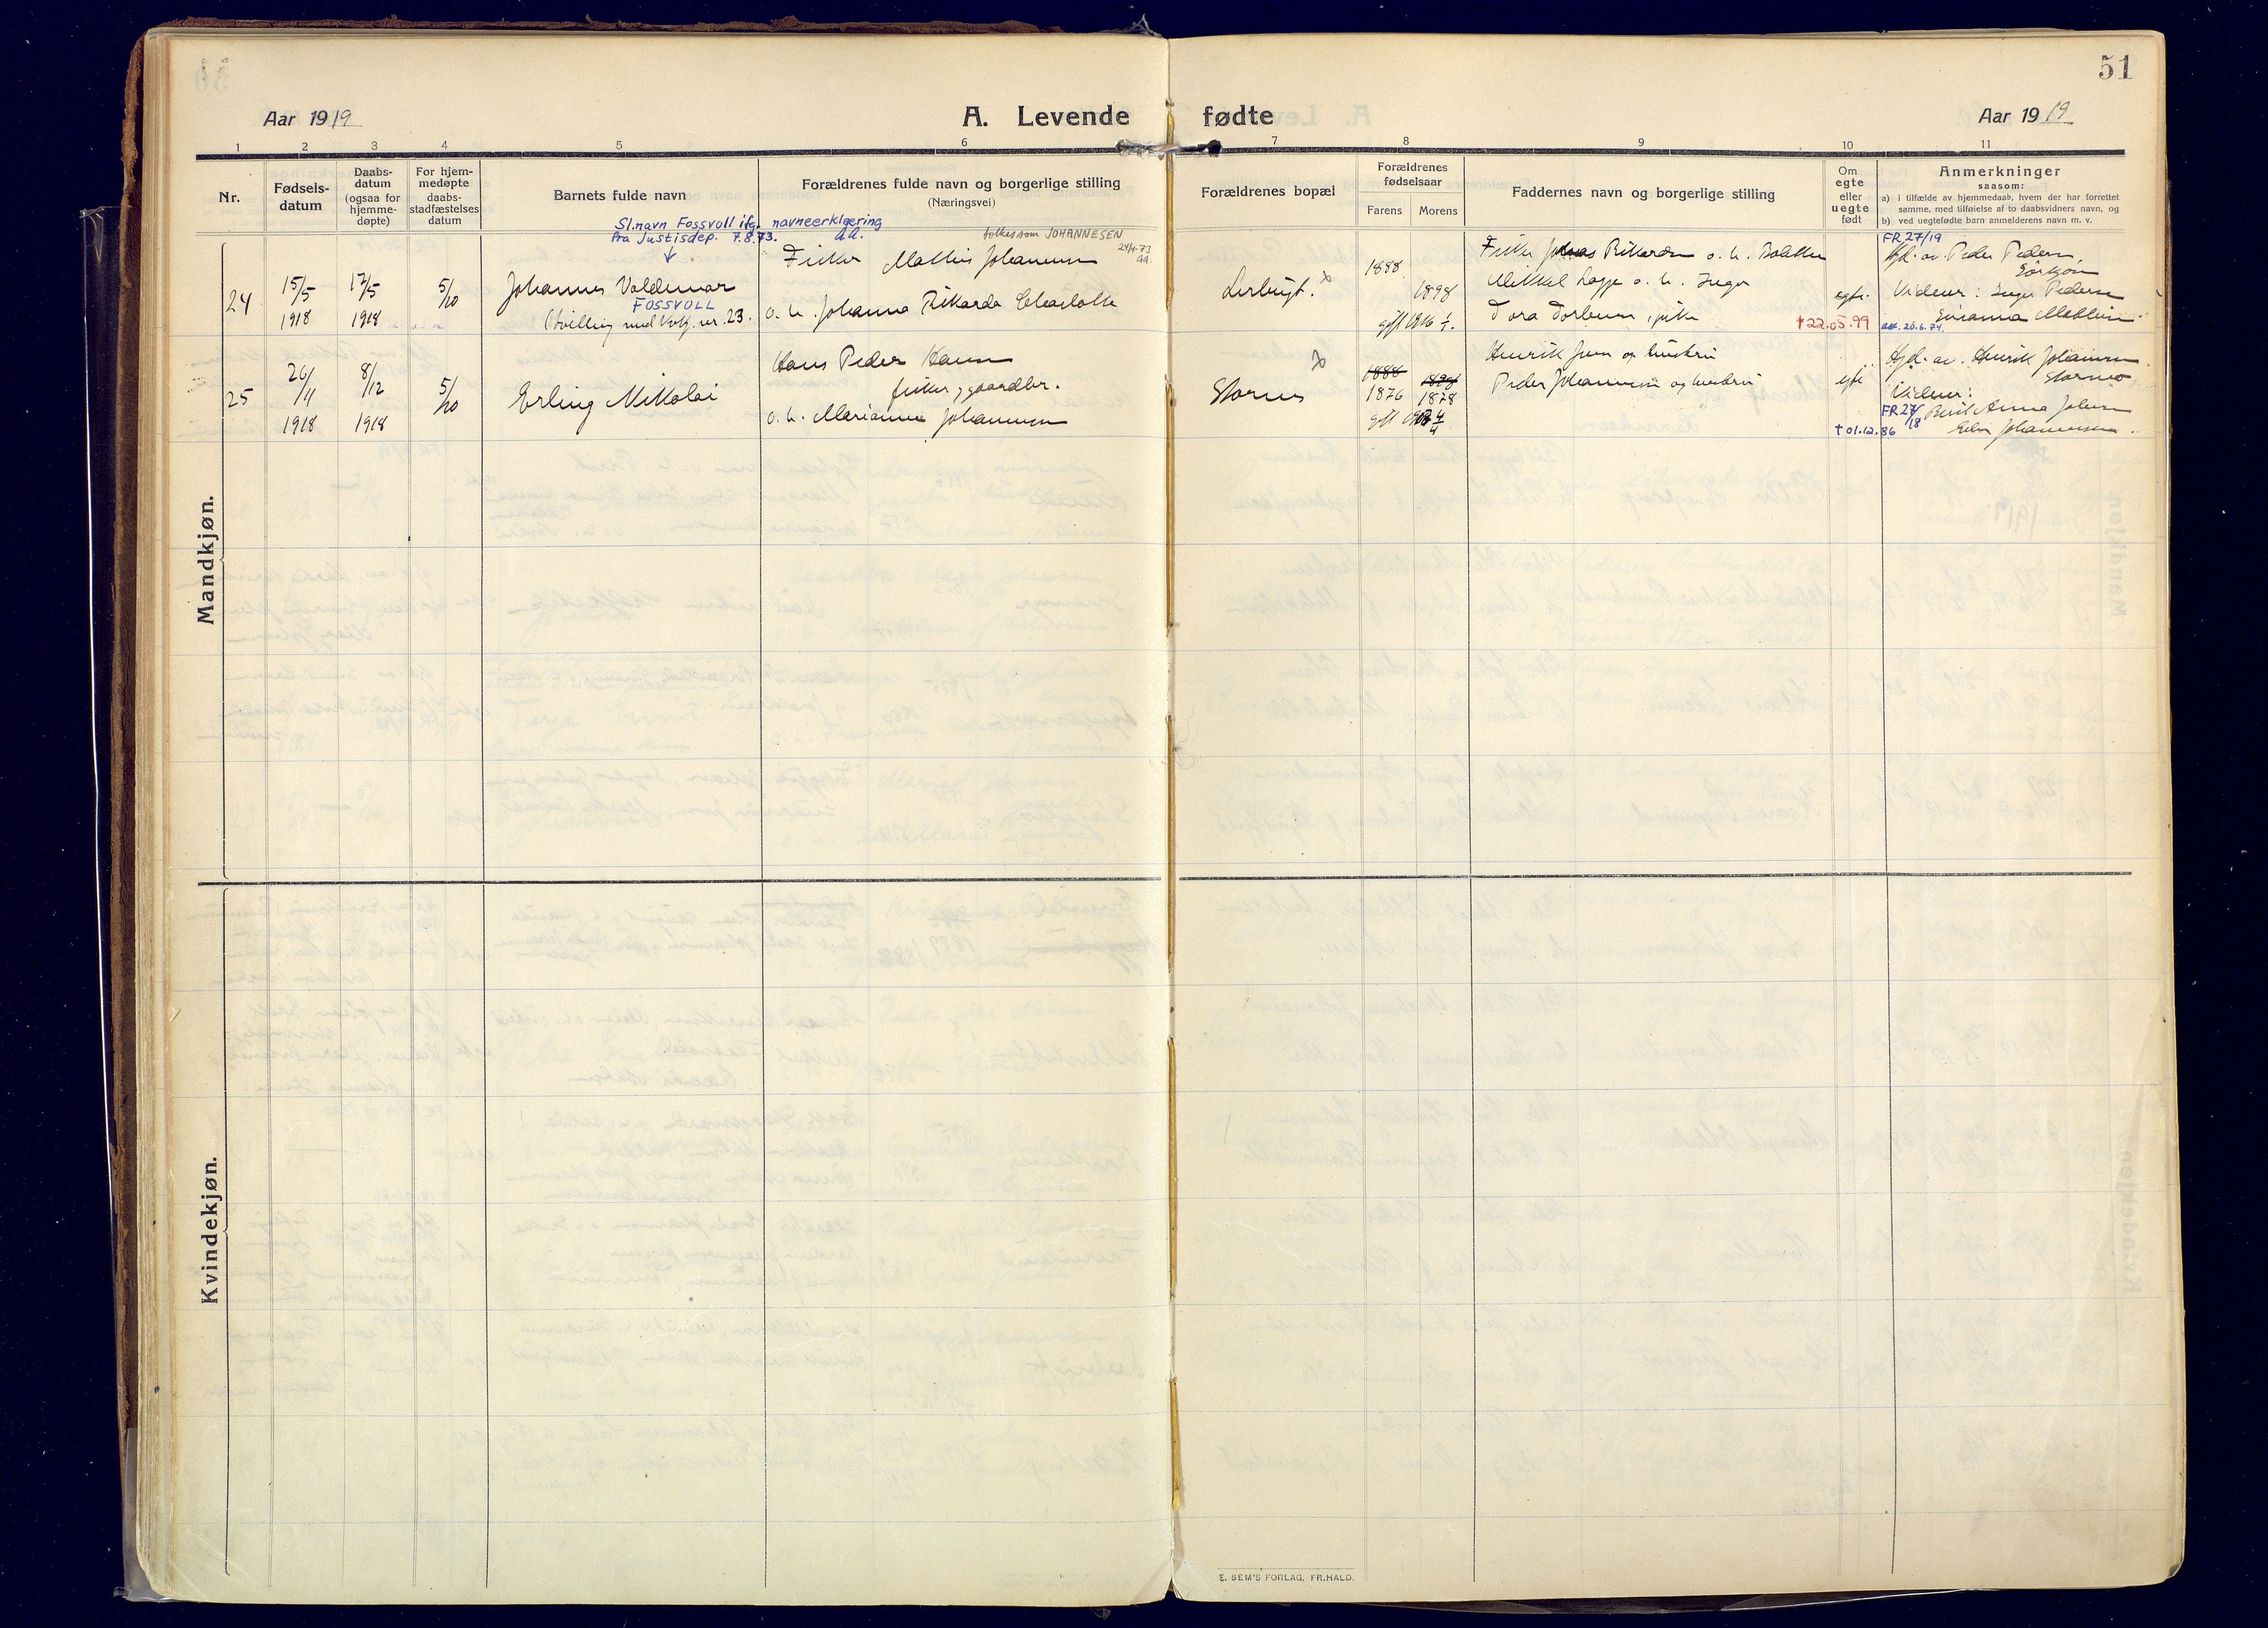 51
Aar 1919
A. Levende fødte
Aar 1919
1 2 3 4 5 6 7 8 9 10 11
Nr.
Fødsels-
datum
Daabs-
datum
(ogsaa for
hjemme-
døpte)
For hjem-
medøpte
daabs-
stadfæstelses
datum
Barnets fulde navn
Forældrenes fulde navn og borgerlige stilling
(Næringsvei)
Forældrenes bopæl
Forældrenes
fødselsaar
Farens Morens
Faddernes navn og borgerlige stilling
Om
egte
eller
uegte
født
Anmerkninger
saasom:
a) i tilfælde av hjemmedaab, hvem der har forrettet
samme, med tilføielse af to daabsvidners navn, og
b) ved uegtefødte barn anmelderens navn m. v.
Mandkjøn.
Sl.navn Fossvoll ifg. navneerklæring
fra Justisdep. 7.8.73. aa.
24
15/5
1918
17/5
1918
5/10
Johannes Valdemar
FOSSVOLL
(Tvilling med nr. 23.
tolkes som JOHANNESEN
24/4-73
aa.
Fisker Mathis Johannesen
o. h. Johanna Rikarda Charlotte
Lerbugt.
1888
1898
gift 1916
Fisker Johas Rikardsen o. h.
Mikkel o. h. Inger
pike
egte.
†22.05.99
FR 27/19
Hjd. av. Peder Pedersen,
Vidner: Inger Pedersen
aa. 20.6.74.
25
26/11
1918
8/12
1918
5/10
Erling Nikolai
Hans Peder Hansen
fisker, gaardbr.
o. h. Marianne Johannesen
Stornes
1888 1898
1876 1878
Henrik Jensen og hustru
Peder Johannesen og hustru
egte
†01.12.86
Hjd. av. Henrik Johannesen
Vidner:
FR 27/18
Berit Anna Johnsen
Johannessen.
Kvindekjøn.
E. SEM'S FORLAG, FR.HALD.